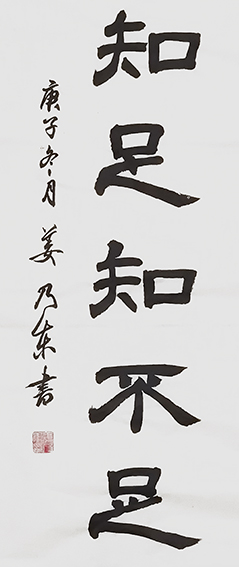 知足知不足
庚子冬月姜乃东書